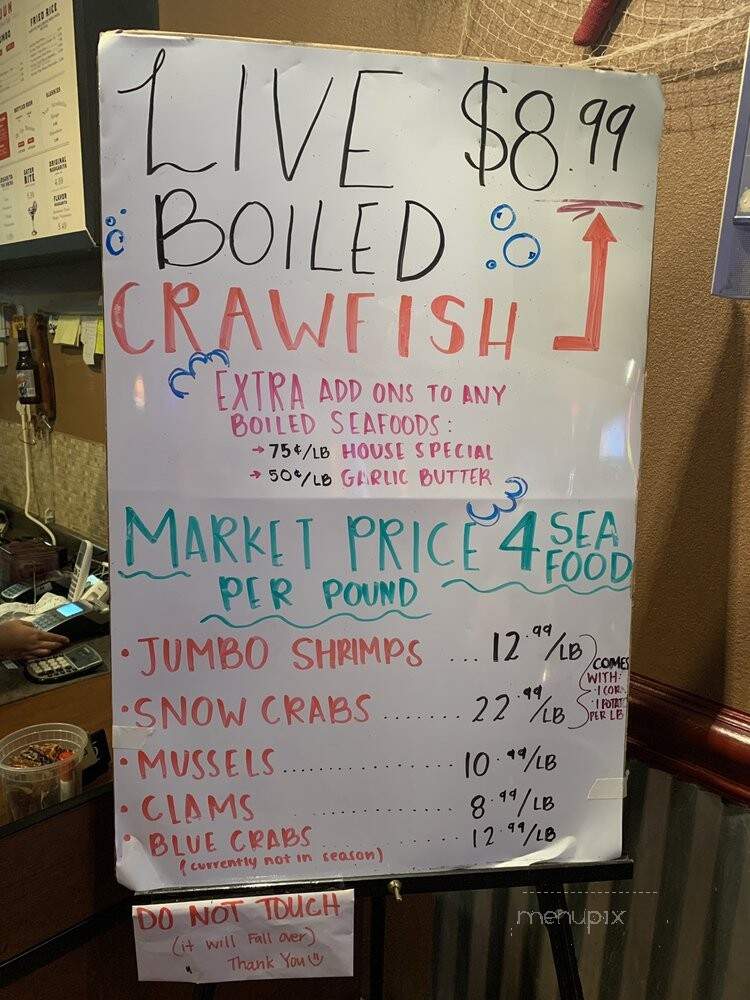 FRIED RICE
LIVE $8.99
BOILED
CRAWFISH
EXTRA ADD ONS TO ANY
BOILED SEAFOODS:
→ 75¢/LB HOUSE SPECIAL
→ 50¢/LB GARLIC BUTTER
MARKET PRICE 4 SEA FOOD
PER POUND
• JUMBO SHRIMPS ... 12.99/LB
• SNOW CRABS ....... 22.99/LB
COMES
WITH:
PER LB
• MUSSELS ............... 10.99/LB
• CLAMS ............ 8.99/LB
• BLUE CRABS ........... 12.99/LB
(currently not in season)
DO NOT TOUCH
(it will fall over)
Thank You
menupix